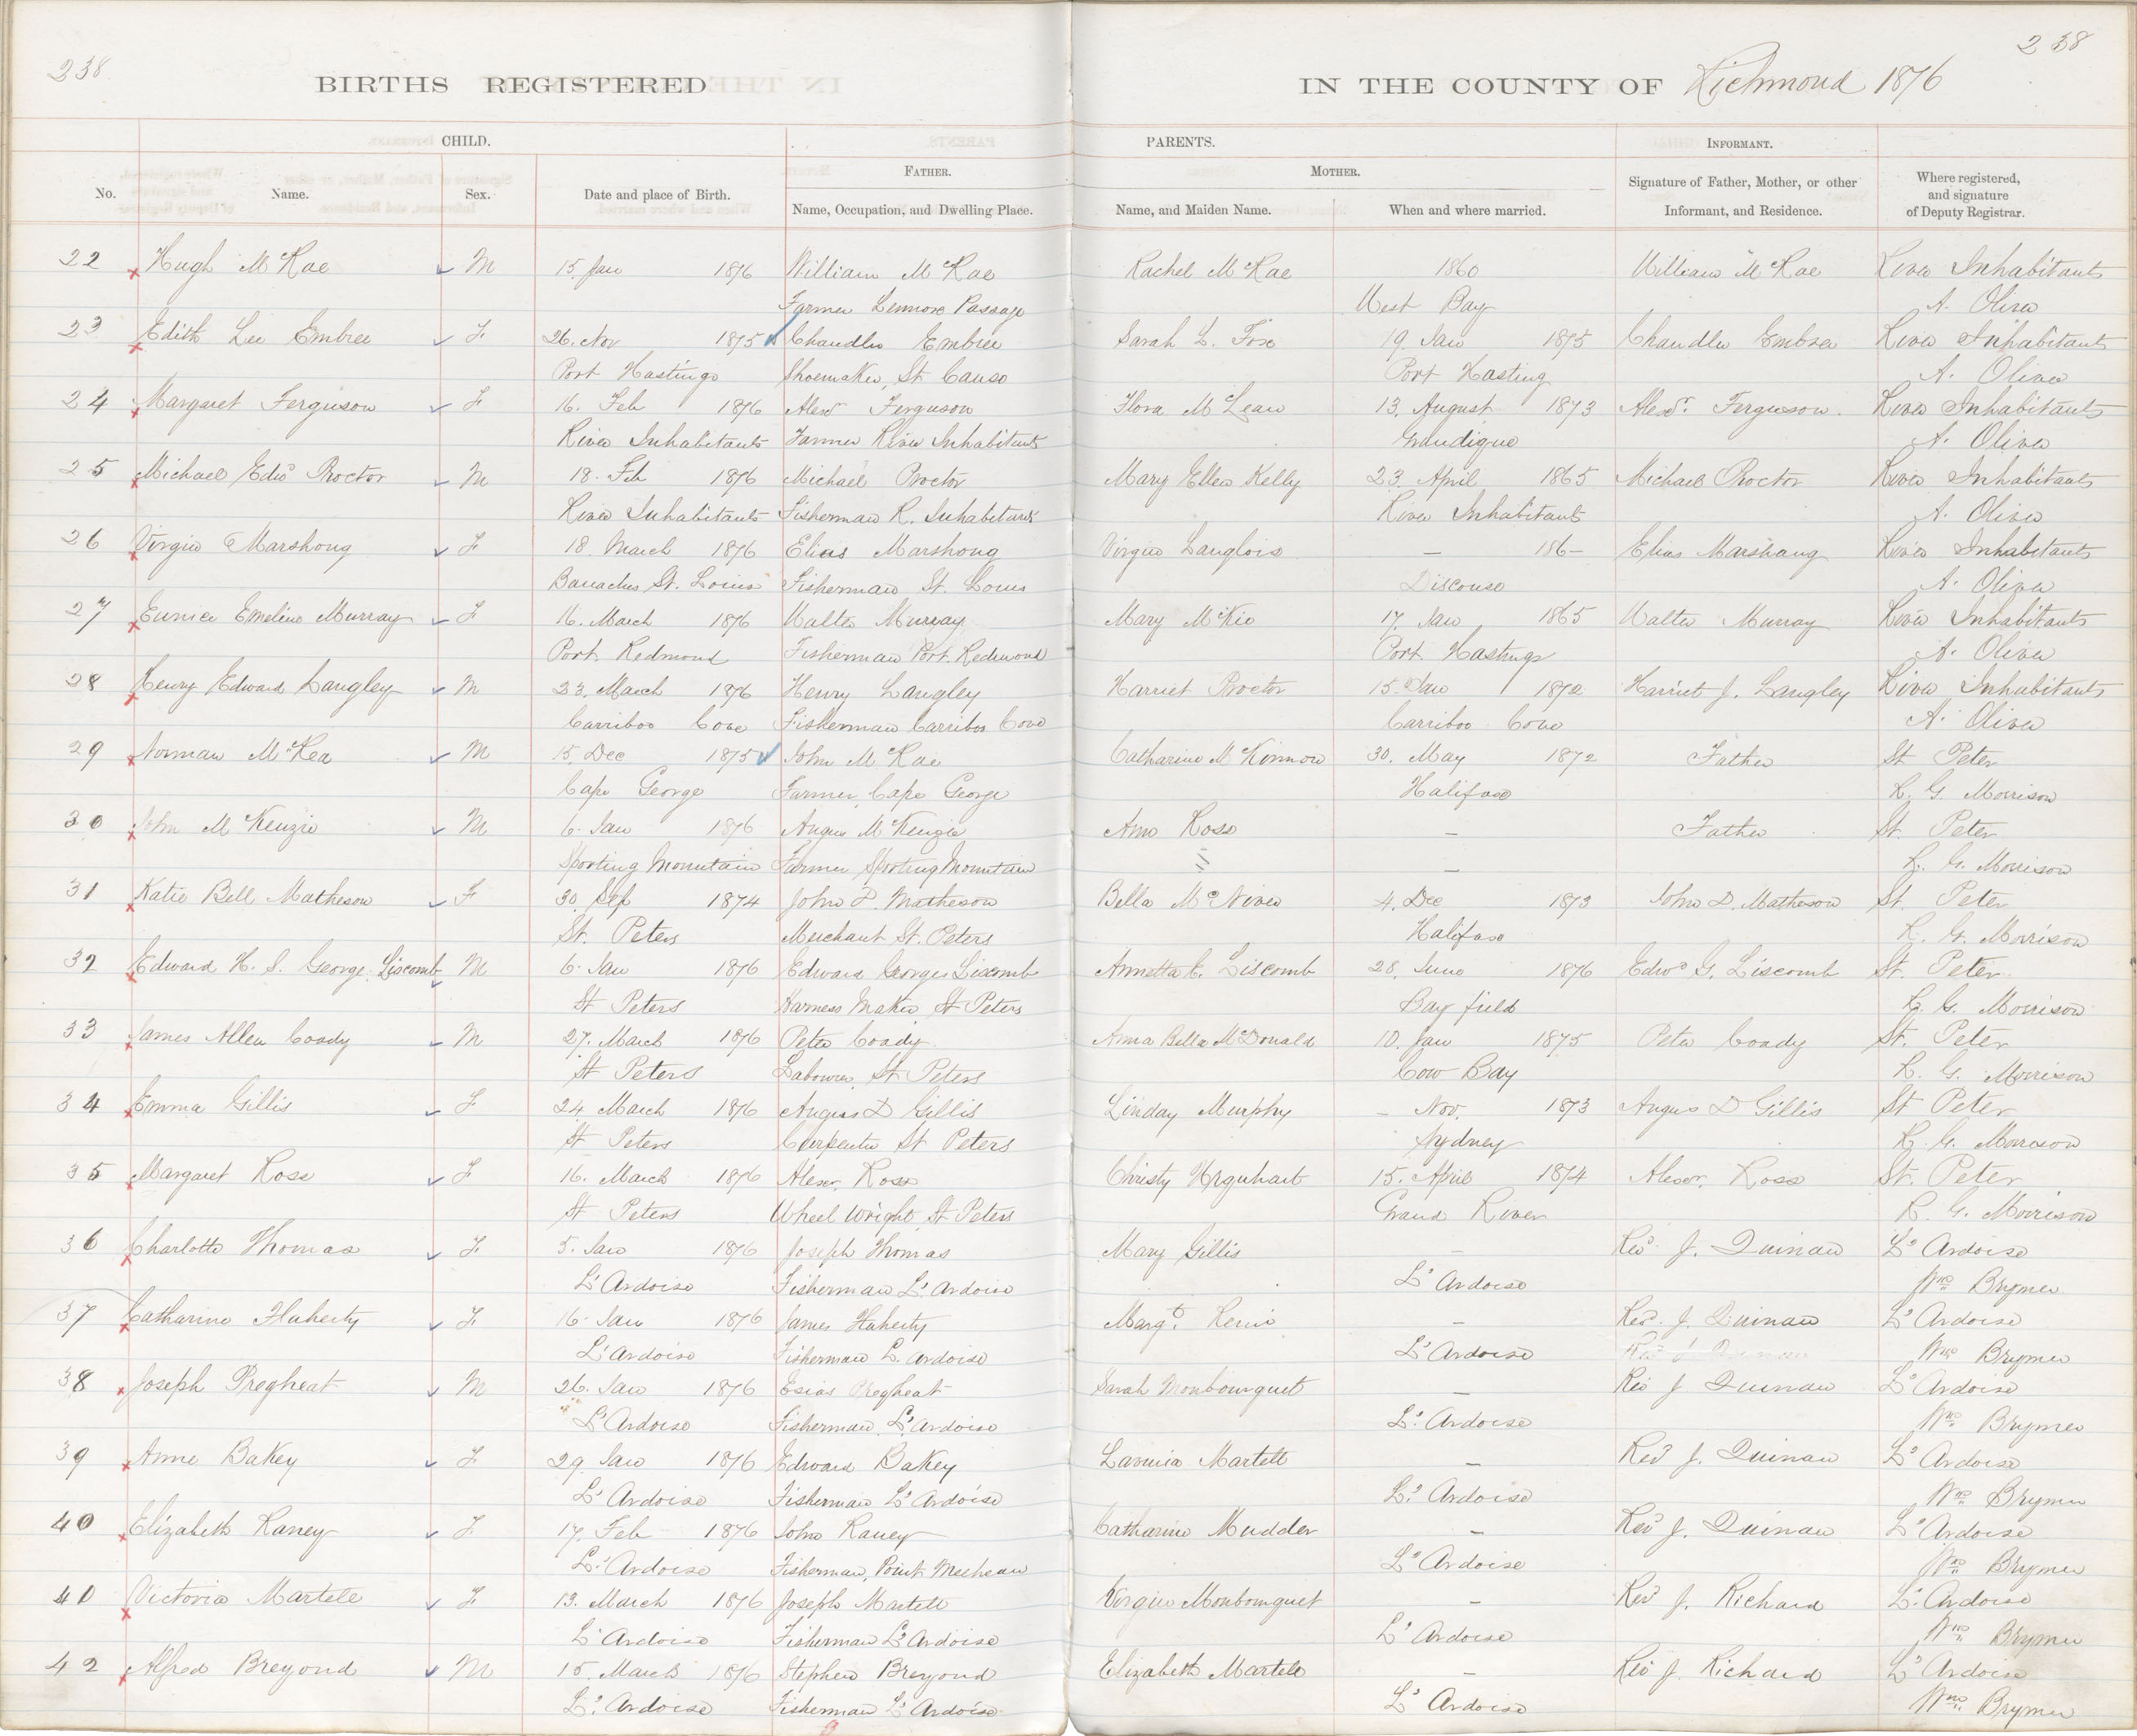 238
238
BIRTHS REGISTERED IN THE COUNTY OF Richmond 1876
CHILD. PARENTS. INFORMANT.
FATHER. MOTHER.
No. Name. Sex. Date and place of Birth. Name, Occupation, and Dwelling Place. Name, and Maiden Name. When and where married. Signature of Father, Mother, or other Informant, and Residence. Where registered, and signature of Deputy Registrar.
22 Hugh McRae M 15. Jan 1876 William McRae Rachel McRae 1860 William McRae River Inhabitants
Farmer Lennox Passage West Bay A. Oliver
23 Edith Lee Embree F 26. Nov 1875 Chandler Embree Sarah L. Fox 19. Jan 1875 Chandler Embree River Inhabitants
Port Hastings Shoemaker, St Canso Port Hasting A. Oliver
24 Margaret Ferguson F 16. Feb 1876 Alexr Ferguson Flora McLean 13. August 1873 Alexr. Ferguson. River Inhabitants
River Inhabitants Farmer River Inhabitants Grandique A. Oliver
25 Michael Edwd Proctor M 18. Feb 1876 Michael Proctor Mary Ellen Kelly 23. April 1865 Michael Proctor River Inhabitants
River Inhabitants Fisherman R. Inhabitants River Inhabitants A. Oliver
26 Virgin Marshong F 18. March 1876 Elias Marshong Virgin Langlois – 186– Elias Marshang River Inhabitants
St. Louis Fisherman St. Louis Discouse A. Oliver
27 Eunice Emeline Murray F 16. March 1876 Walter Murray Mary McKie 17. Jan 1865 Walter Murray River Inhabitants
Port. Redmond Fisherman Port. Redmond Port. Hastings A. Oliver
28 Henry Edward Langley M 23. March 1876 Henry Langley Harriet Proctor 15. Jan 1872 Harriet J. Langley River Inhabitants
Carriboo Cove Fisherman Carriboo Cove Carriboo Cove A. Oliver
29 Norman McRea M 15. Dec 1875 John McRae Catharine McKinnon 30. May 1872 Father St Peter
Cape George Farmer, Cape George Halifax R. G. Morrison
30 John McKenzie M 6. Jan 1876 Angus McKenzie Ann Ross – Father St. Peter
Sporting Mountain Farmer Sporting Mountain – R. G. Morrison
31 Katie Bell Matheson F 30. Sep 1874 John D. Matheson Bella McNiven 4. Dec 1873 John D. Matheson St. Peter
St. Peters Merchant St. Peters Halifax R. G. Morrison
32 Edward H. S. George Liscomb M 6. Jan 1876 Edward George Liscomb Annetta C. Liscomb 28. June 1876 Edwd G. Liscomb St. Peter
St Peters Harness Maker St Peters Bay field R. G. Morrison
33 James Allen Coady M 27. March 1876 Peter Coady Anna Bella McDonald 10. Jan 1875 Peter Coady St. Peter
St Peters Labourer, St Peters Cow Bay R. G. Morrison
34 Emma Gillis F 24 March 1876 Angus D Gillis Linday Murphy – Nov. 1873 Angus D Gillis St Peter
St Peters Carpenter St Peters Sydney R. G. Morrison
35 Margaret Ross F 16. March 1876 Alexr. Ross Christy Urguhart 15. April 1874 Alexr. Ross St. Peter
St Peters Wheel Wright, St Peters Grand River R. G. Morrison
36 Charlotte Thomas F 5. Jan 1876 Joseph Thomas Mary Gillis – Revd. J. Quinan L'Ardoise
L'Ardoise Fisherman L'Ardoise L'Ardoise Wm Brymer
37 Catharine Flaherty F 16. Jan 1876 James Flaherty Margt. – Revd. J. Quinan L'Ardoise
L'Ardoise Fisherman L. ardoise L'Ardoise Wm Brymer
38 Joseph Pregheat M 26. Jan 1876 Esias Pregheat Sarah Monbourquet – Rev J Quinan L'Ardoise
L'Ardoise Fisherman, L'Ardoise L'Ardoise Wm Brymer
39 Anne Bakey F 29 Jan 1876 Edward Bakey Lavinia Martell – Revd J. Quinan L'Ardoise
L'Ardoise Fisherman L'Ardoise L'Ardoise Wm Brymer
40 Elizabeth Raney F 17. Feb 1876 John Raney Catharine Mudder – Revd J. Quinan L'Ardoise
L'Ardoise Fisherman, Point Meehean L'Ardoise Wm Brymer
41 Victoria Martele F 13. March 1876 Joseph Martell Virgin Monbourquet – Revd J. Richard L'Ardoise
L'Ardoise Fisherman L'Ardoise L'Ardoise Wm Brymer
42 Alfred Breyond M 15. March 1876 Stephen Breyond Elizabeth Martele – Rev J. Richard L'Ardoise
L'Ardoise Fisherman L'Ardoise L'Ardoise Wm Brymer